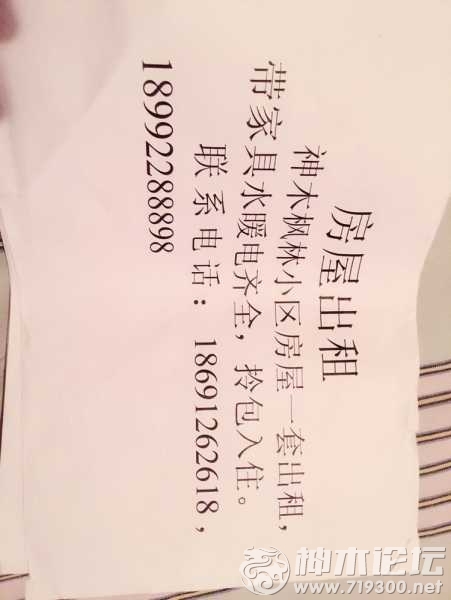 房屋出租
神木枫林小区房屋一套出租，
带家具水暖电齐全，拎包入住。
联系电话：18691262618，
18992288898
神木论坛
www.719300.net